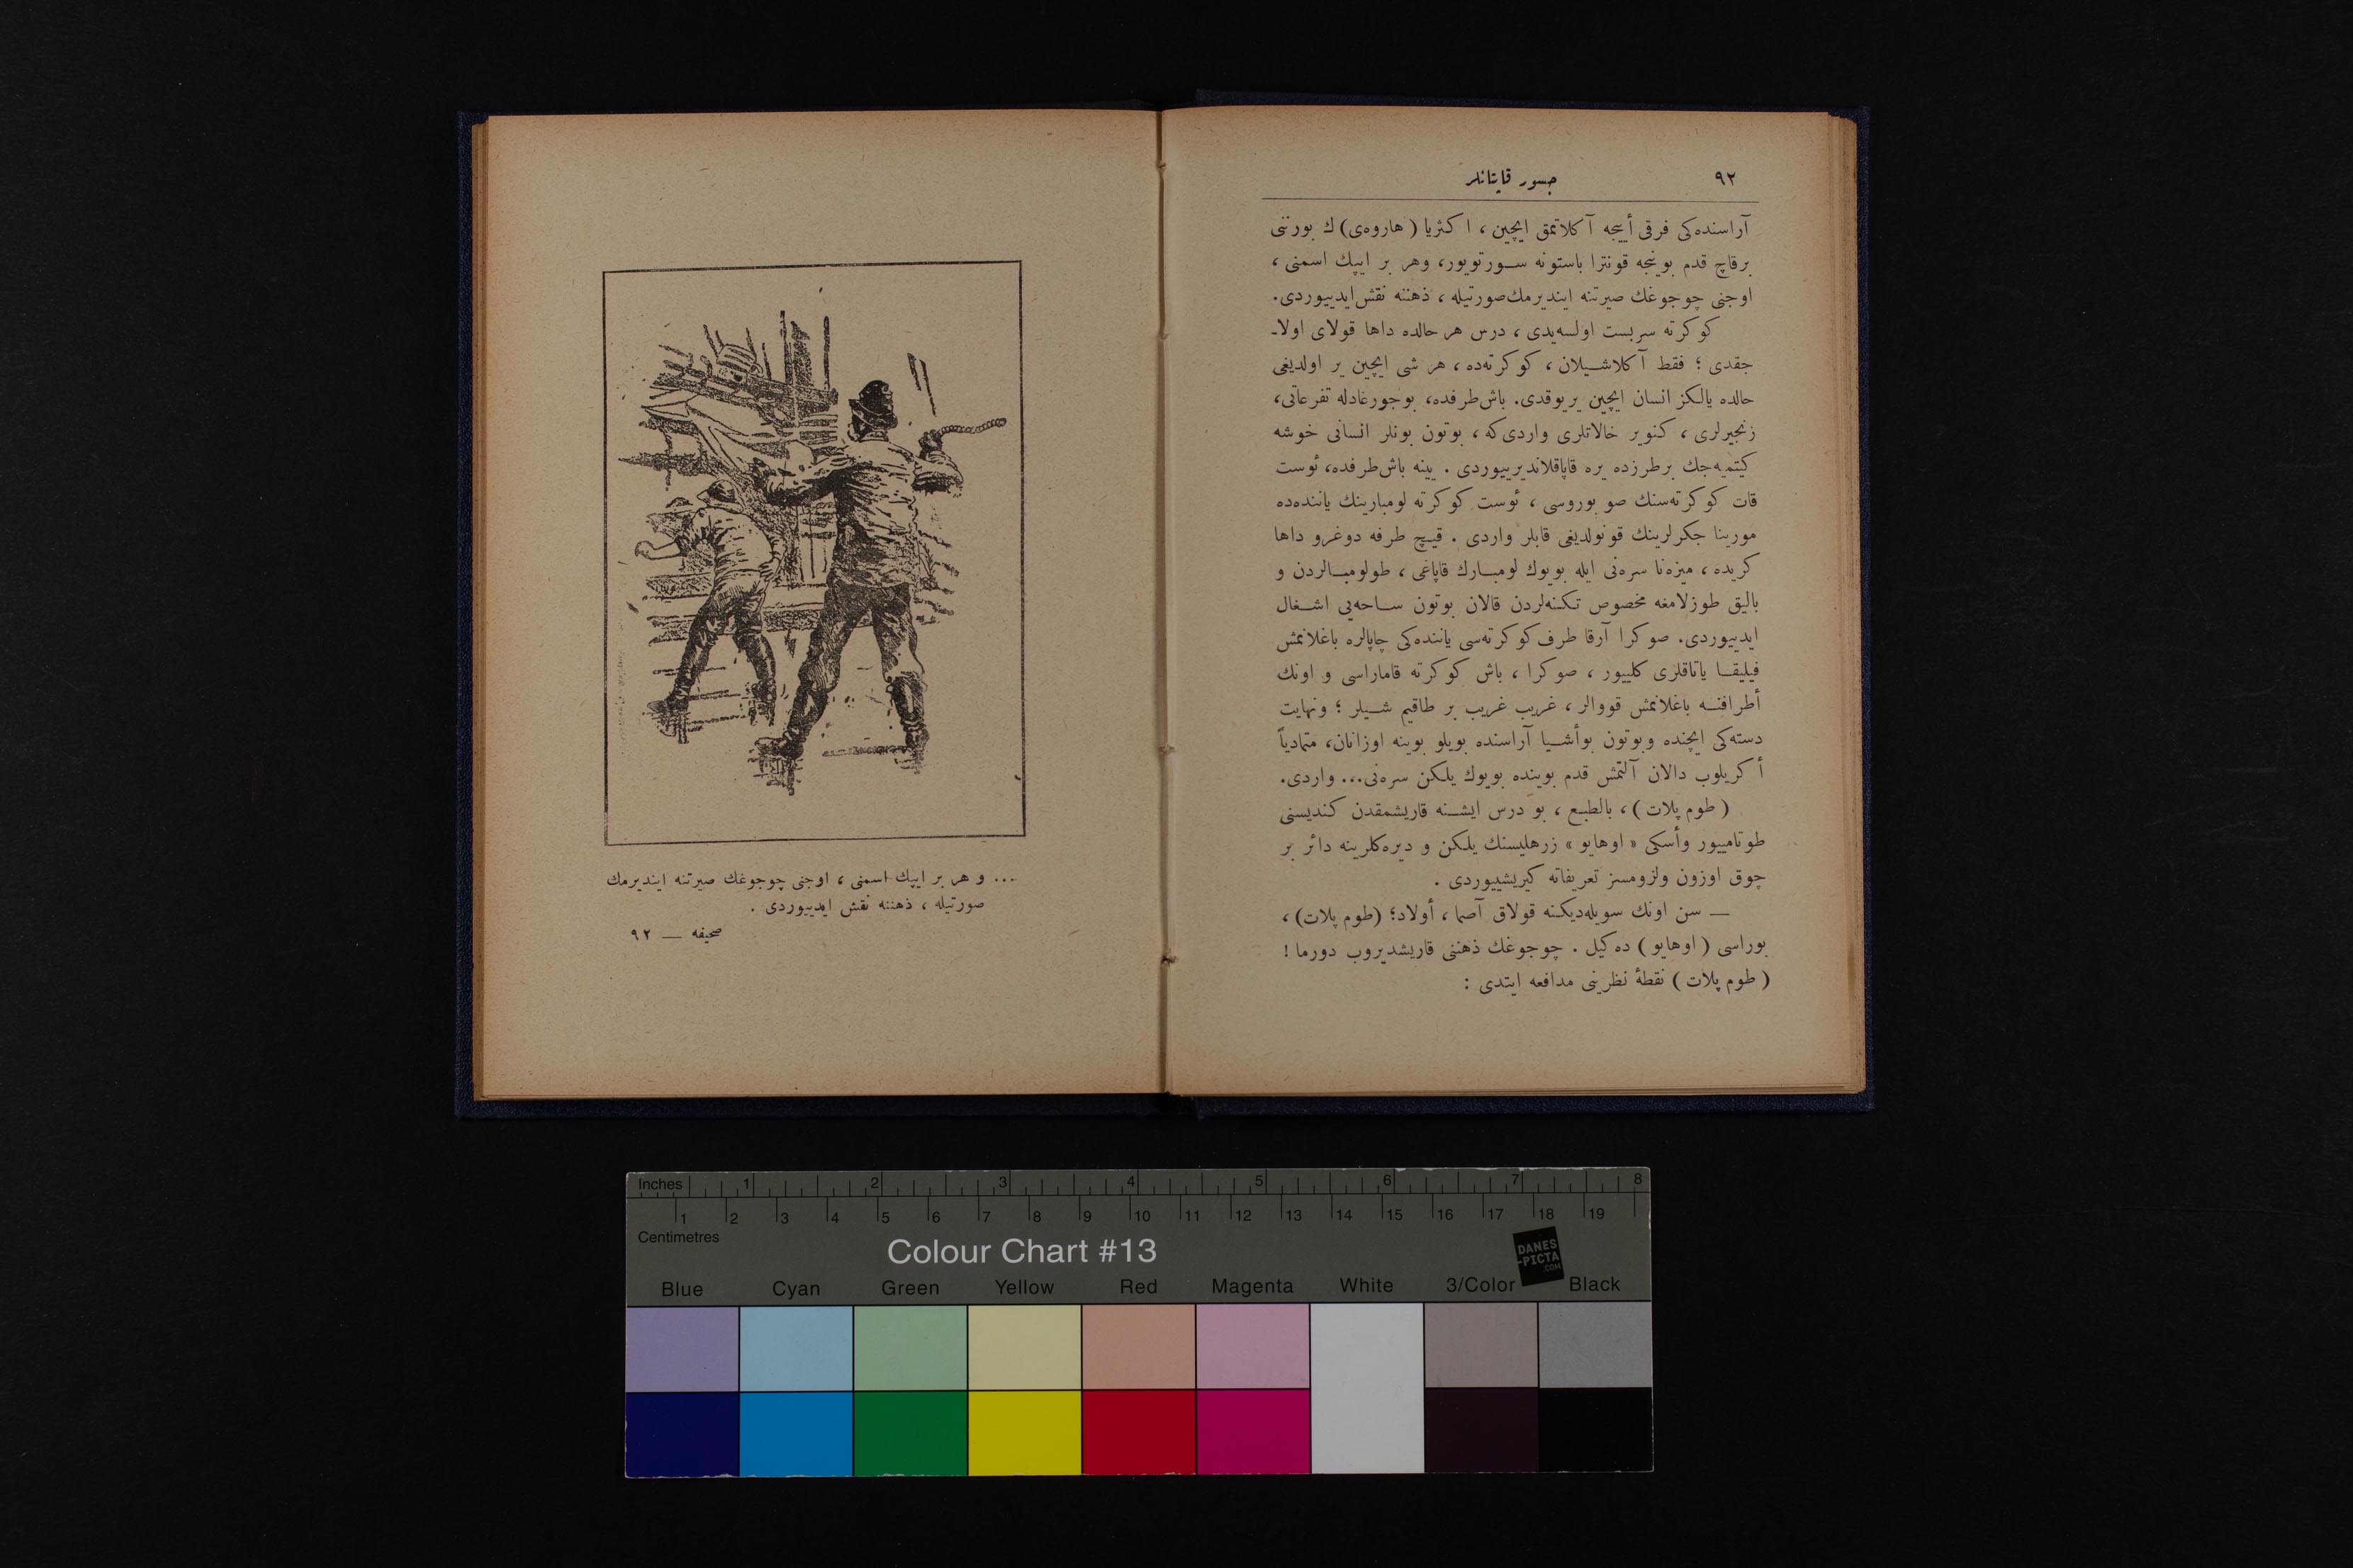 ٩٢
جسور قاپتانلر
آراسنده‌كی فرقی أییجه آكلاتمق ایچین ، اكثریا ( هاروه‌ی ) ك بورننی
برقاچ قدم بوینجه قونترا باستونه سورتویور، وهر بر ایپك اسمنی ،
اوجنی چوجوغك صیرتنه ایندیرمك‌صورتیله ، ذهننه نقش‌ایدییوردی.
كوكرته سربست اولسه‌یدی ، درس هر حالده داها قولای اولا-
جقدی ؛ فقط آكلاشیلان ، كوكرته‌ده ، هر شی ایچین یر اولدیغی
حالده یالكز انسان ایچین یریوقدی. باش‌طرفده، بوجورغادله تفرعاتی،
زنجیرلری ، كنویر خالاتلری واردی‌كه ، بوتون بونلر انسانی خوشه
كیتمیه‌جك برطرزده یره قاپاقلاندیرییوردی . یینه باش‌طرفده، ئوست
قات كوكرته‌سنك صو بوروسی ، ئوست كوكرته لومبارینك یاننده‌ده
مورینا جكرلرینك قونولدیغی قابلر واردی . قیچ طرفه دوغرو داها
كریده ، میزه‌نا سره‌نی ایله بویوك لومبارك قاپاغی ، طولومبالردن و
بالیق طوزلامغه مخصوص تكنه‌لردن قالان بوتون ساحه‌یی اشغال
ایدییوردی. صوكرا آرقا طرف‌كوكرته‌سی یاننده‌كی چاپالره باغلانمش
فیلیقا یاتاقلری كلییور ، صوكرا ، باش كوكرته قاماراسی و اونك
أطرافنه باغلانمش قووالر ، غریب غریب بر طاقیم شیلر ؛ ونهایت
دسته‌كی ایچنده وبوتون بوأشیا آراسنده بویلو بوینه اوزانان، متمادیاً
أكریلوب دالان آلتمش قدم بوینده بویوك یلكن سره‌نی... واردی.
( طوم پلات ) ، بالطبع ، بو درس ایشنه قاریشمقدن كندیسنی
طوتامییور وأسكی « اوهایو » زرهلیسنك یلكن و دیره‌كلرینه دائر بر
چوق اوزون ولزومسز تعریفاته كیریشییوردی .
— سن اونك سویله‌دیكنه قولاق آصما ، أولاد؛ (طوم پلات) ،
بوراسی ( اوهایو ) ده‌كیل . چوجوغك ذهننی قاریشدیروب دورما !
( طوم پلات ) نقطۀ نظرینی مدافعه ایتدی :
... و هر بر ایپك اسمنی ، اوجنی چوجوغك صیرتنه ایندیرمك
صورتیله ، ذهننه نقش ایدییوردی .
صحیفه — ٩٢
Inches 1 2 3 4 5 6 7 8
1 2 3 4 5 6 7 8 9 10 11 12 13 14 15 16 17 18 19
Centimetres
Colour Chart #13
DANES
-PICTA
.COM
Blue Cyan Green Yellow Red Magenta White 3/Color Black